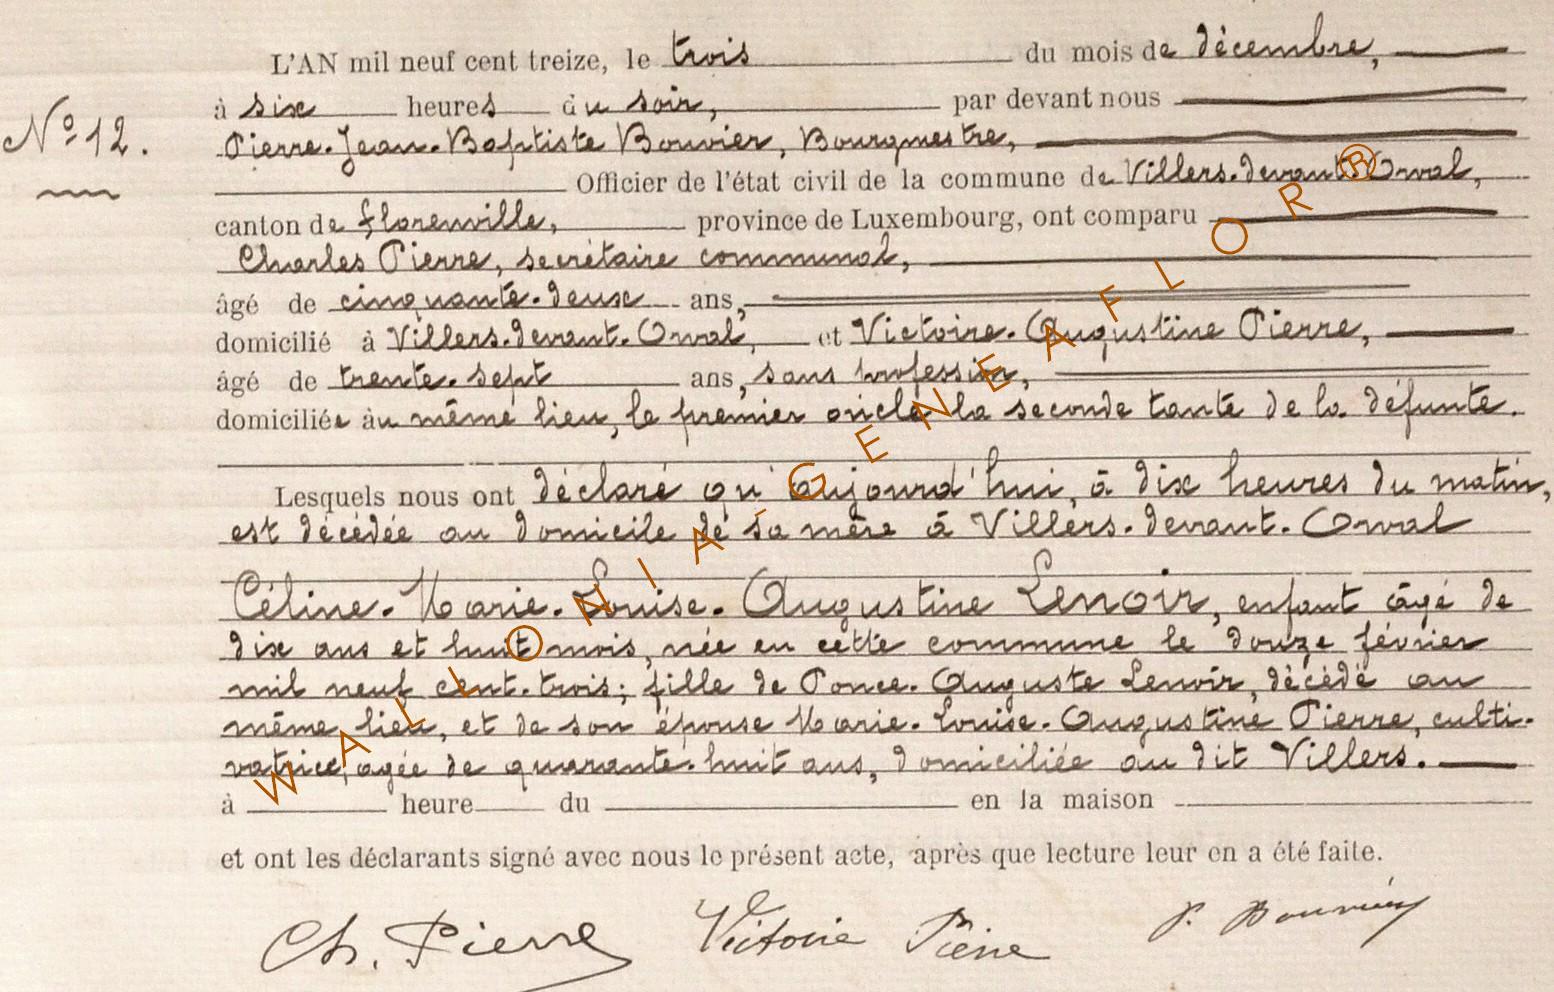 L'AN mil neuf cent treize, le trois du mois de décembre,
à six heures du soir, par devant nous
Nº 12.
Pierre-Jean-Baptiste Bouvier, Bourgmestre,
Officier de l'état civil de la commune de Villers-devant-Orval,
canton de Florenville, province de Luxembourg, ont comparu
Charles Pierre, secrétaire communal,
âgé de cinquante-deux ans,
domicilié à Villers-devant-Orval, et Victoire-Augustine Pierre,
âgé de trente-sept ans, sans profession,
domiciliée au même lieu, le premier oncle la seconde tante de la défunte.
Lesquels nous ont déclaré qu'aujourd'hui, à dix heures du matin,
est décédée au domicile de sa mère à Villers-devant-Orval
Céline-Marie-Louise-Augustine Lenoir, enfant âgé de
dix ans et huit mois, née en cette commune le douze février
mil neuf cent-trois; fille de Ponce-Auguste Lenoir, décédé au
même lieu, et de son épouse Marie-Louise-Augustine Pierre, culti-
vatrice, agée de quarante-huit ans, domiciliée au dit Villers.
à heure du en la maison
et ont les déclarants signé avec nous le présent acte, après que lecture leur en a été faite.
Ch. Pierre Victoire Pierre P. Bouvier
WALLONIA-GENEAFLOR®